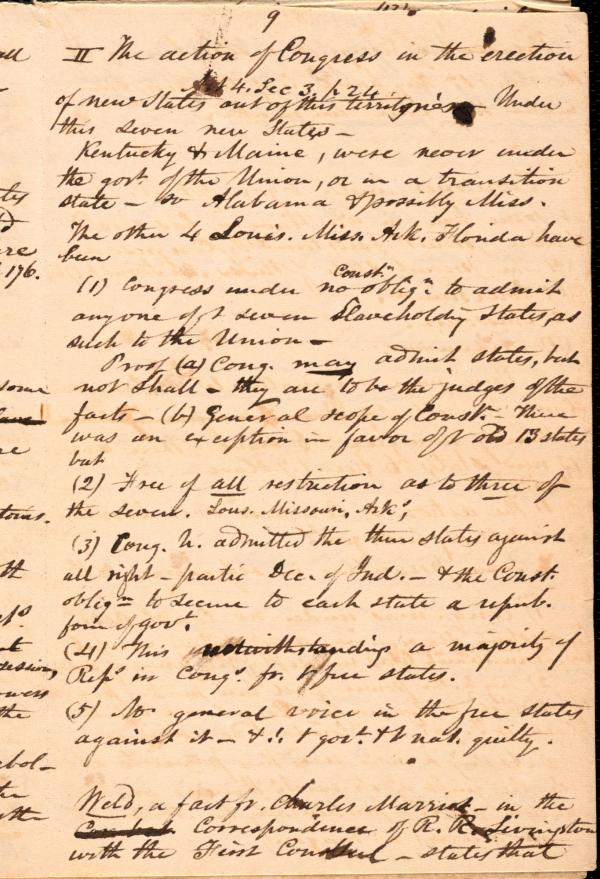 9
II The action of Congress in the erection
Art 4. Sec 3. p 24.
of new States out of this territories Under
this seven new States –
Kentucky & Maine, were never under
the govt. of the Union, or in a transition
state – so Alabama & possibly Miss.
The other 4 Louis. Miss. Ark. Florida have
been
Constl
(1) Congress under no oblign. to admit
any one of t seven Slaveholdg States, as
such to the Union –
Proof (a) Cong. may admit states, but
not shall – they are to be the judges of the
facts – (b) General scope of Const. There
was an exception in favor of t old 13 states
but
(2) Free of all restriction as to three of
the seven. Lous. Missouri, Arks,
(3) Cong. h. admitted the three states against
all right – partic Dec. of Ind. – & the Const.
oblign to secure to each state a repub.
form of govt.
(4) This notwithstanding a majority of
Reps in Congs. fr. t free states.
(5) No general voice in the free states
against it – & t govt. & t nat. guilty.
Weld, a fact fr. Charles Marriot – in the
Correspondence of R. R. Livingston
with the First Consul – states that
all
176.
some
toms.
the
the